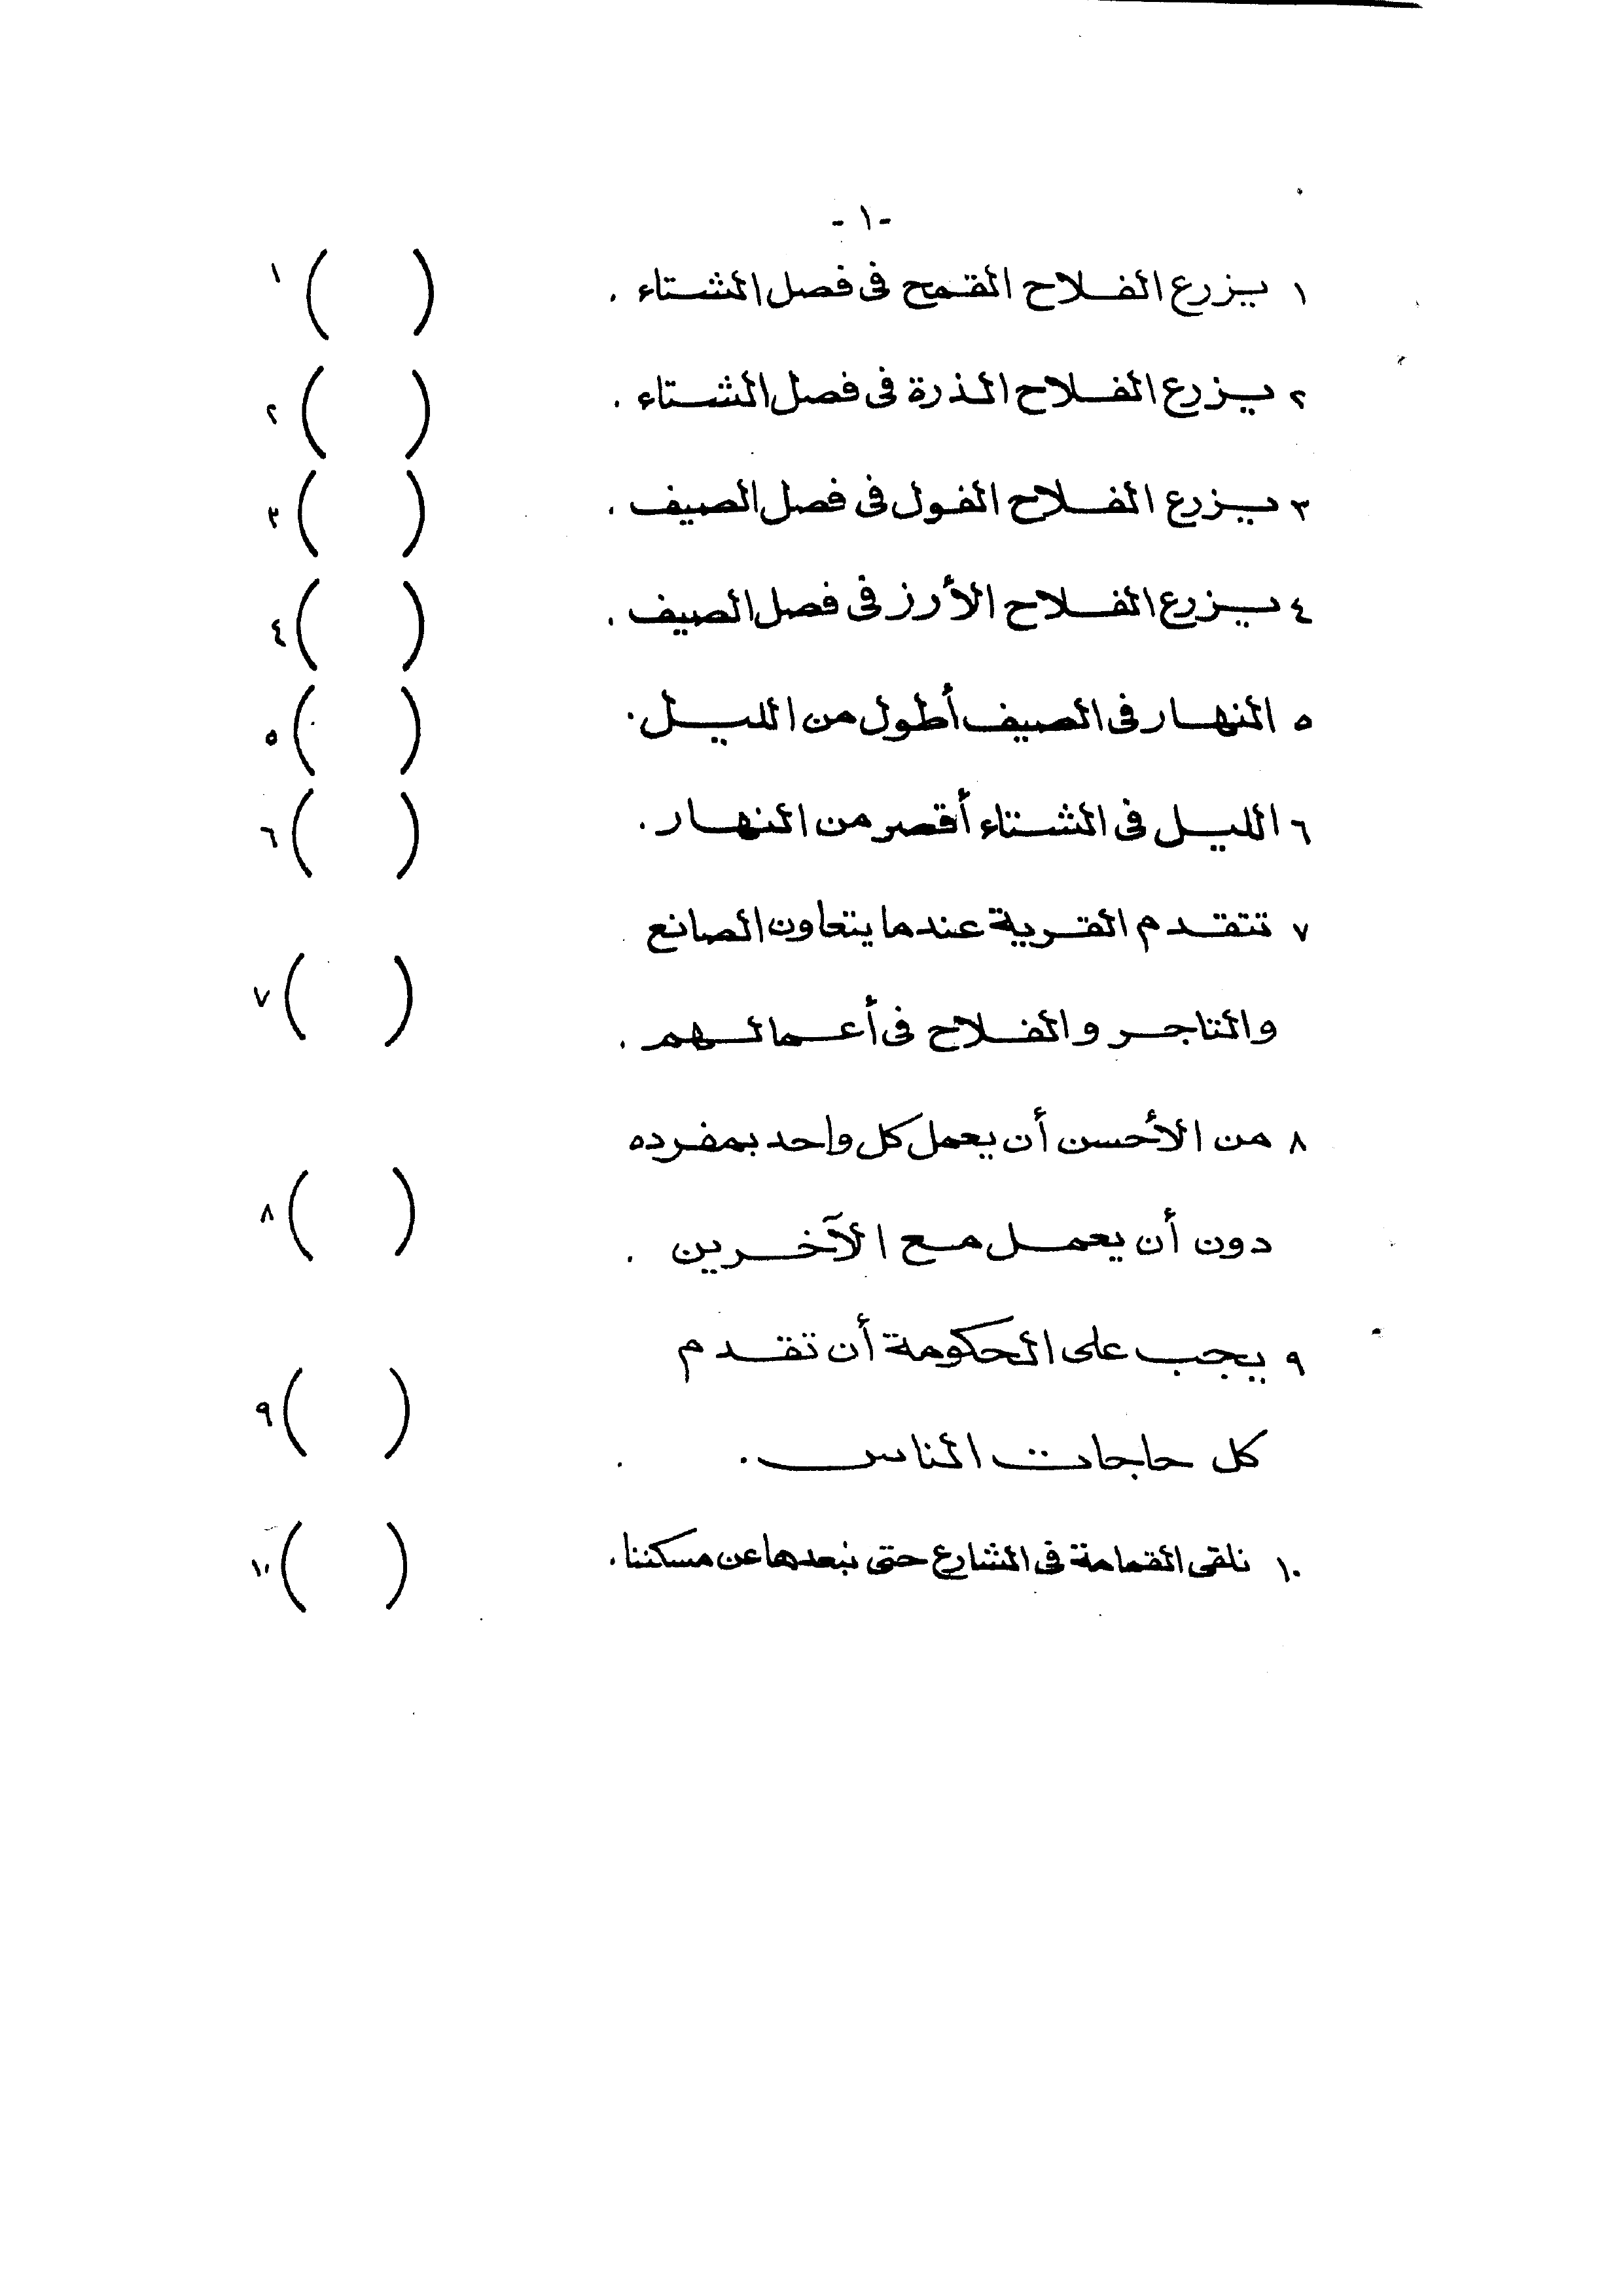 -١-
١ يزرع الفلاح القمح فى فصل الشتاء . ( ) ١
٢ يزرع الفلاح الذرة فى فصل الشتاء . ( ) ٢
٣ يزرع الفلاح الفول فى فصل الصيف . ( ) ٣
٤ يزرع الفلاح الأرز فى فصل الصيف . ( ) ٤
٥ النهار فى الصيف أطول من الليل . ( ) ٥
٦ الليل فى الشتاء أقصر من النهار . ( ) ٦
٧ تتقدم القرية عندما يتعاون الصانع
والتاجر والفلاح فى أعمالهم . ( ) ٧
٨ من الأحسن أن يعمل كل واحد بمفرده
دون أن يعمل مع الآخرين . ( ) ٨
٩ يجب على الحكومة أن تقدم
كل حاجات الناس . ( ) ٩
١٠ نلقى القمامة فى الشارع حتى نبعدها عن مسكننا . ( ) ١٠